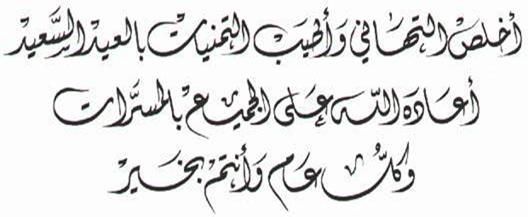 أخلص التهاني وأطيب التمنيات بالعيد السعيد
أعاده الله على الجميع بالمسرات
وكل عام وأنتم بخير